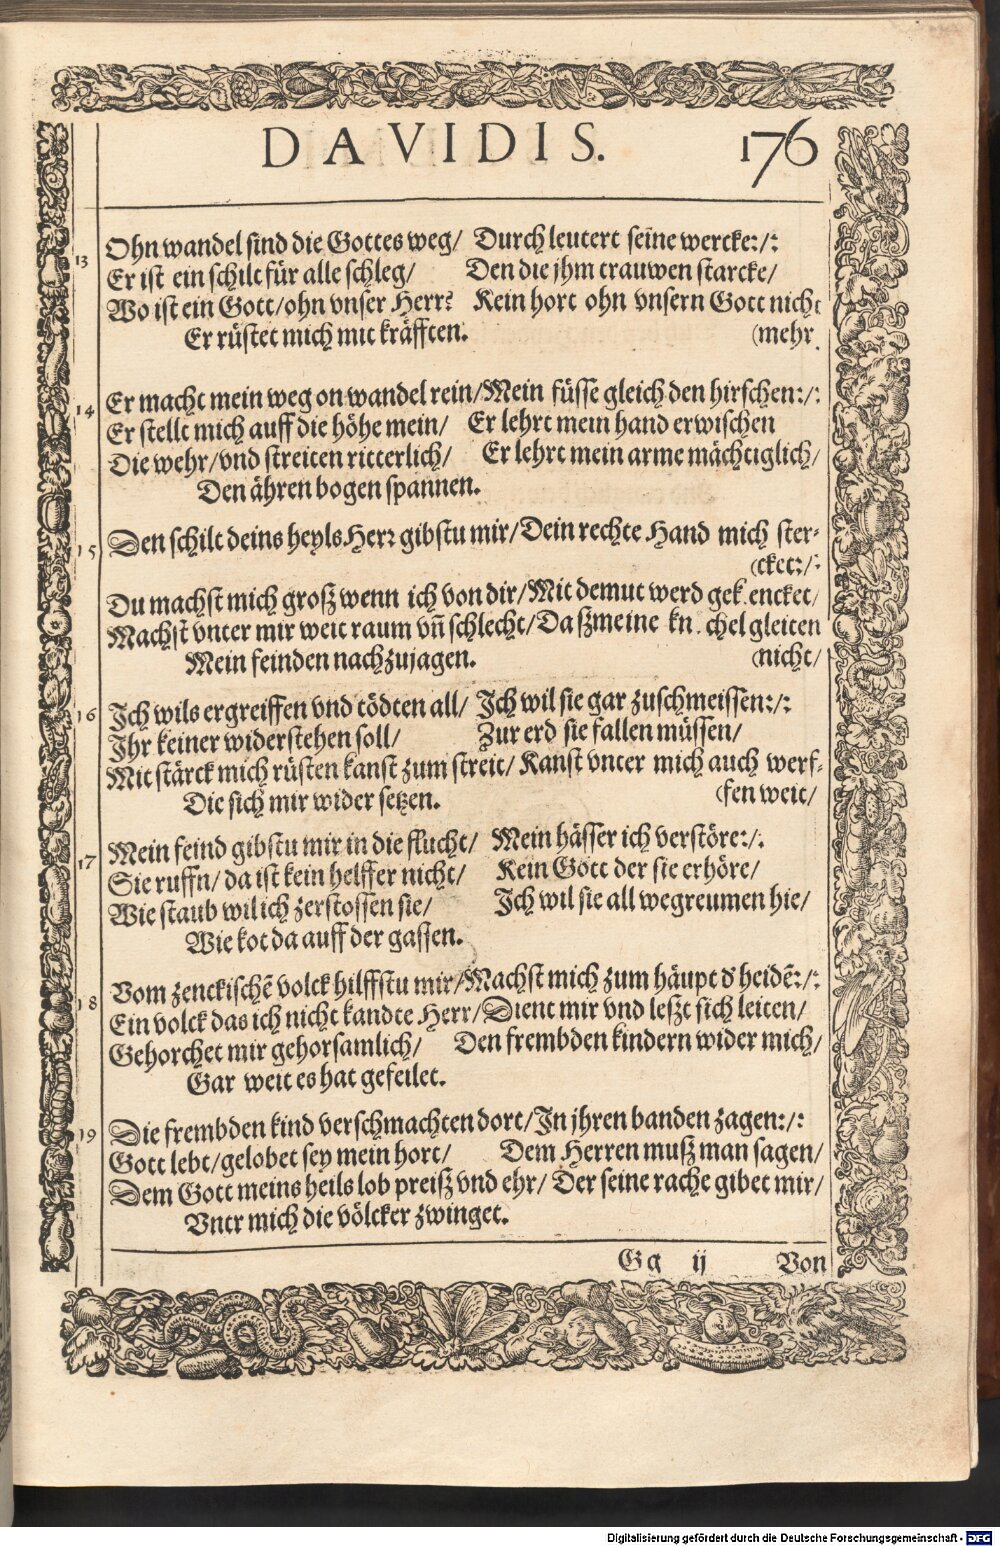 DAVIDIS. 176
13 Ohn wandel sind die Gottes weg/ Durch leutert seine wercke:/:
Er ist ein schilt für alle schleg/ Den die jhm trauwen starcke/
Wo ist ein Gott/ohn vnser Herr? Kein hort ohn vnsern Gott nicht
Er rüstet mich mit kräfften. (mehr
14 Er macht mein weg on wandel rein/Mein füsse gleich den hirschen:/:
Er stellt mich auff die höhe mein/ Er lehrt mein hand erwischen
Die wehr/vnd streiten ritterlich/ Er lehrt mein arme mächtiglich/
Den ähren bogen spannen.
15 Den schilt deins heyls Herr gibstu mir/Dein rechte Hand mich ster-
(cket:/:
Du machst mich groß wenn ich von dir/Mit demut werd gek encket/
Machst vnter mir weit raum vñ schlecht/Daß meine kn chel gleiten
Mein feinden nachzujagen. (nicht/
16 Ich wils ergreiffen vnd tödten all/ Ich wil sie gar zuschmeissen:/:
Ihr keiner widerstehen soll/ Zur erd sie fallen müssen/
Mit stärck mich rüsten kanst zum streit/ Kanst vnter mich auch werf-
Die sich mir wider setzen. (fen weit/
17 Mein feind gibstu mir in die flucht/ Mein hässer ich verstöre:/:
Sie ruffn/ da ist kein helffer nicht/ Kein Gott der sie erhöre/
Wie staub wil ich zerstossen sie/ Ich wil sie all wegreumen hie/
Wie kot da auff der gassen.
18 Vom zenckischē volck hilffstu mir/Machst mich zum häupt d' heidē:/:
Ein volck das ich nicht kandte Herr/Dient mir vnd leßt sich leiten/
Gehorchet mir gehorsamlich/ Den frembden kindern wider mich/
Gar weit es hat gefeilet.
19 Die frembden kind verschmachten dort/In jhren banden zagen:/:
Gott lebt/gelobet sey mein hort/ Dem Herren muß man sagen/
Dem Gott meins heils lob preiß vnd ehr/ Der seine rache gibet mir/
Vntr mich die völcker zwinget.
Gg ij Von
Digitalisierung gefördert durch die Deutsche Forschungsgemeinschaft - DFG